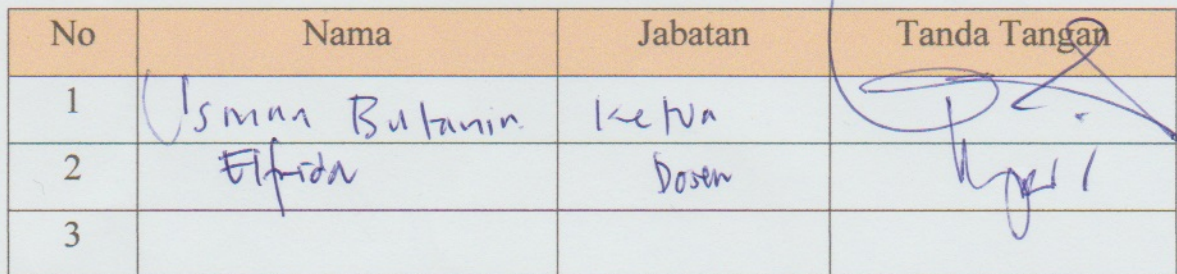 No Nama Jabatan Tanda Tangan
1 Usman Butanin Ketua
2 Elfrida Dosen
3